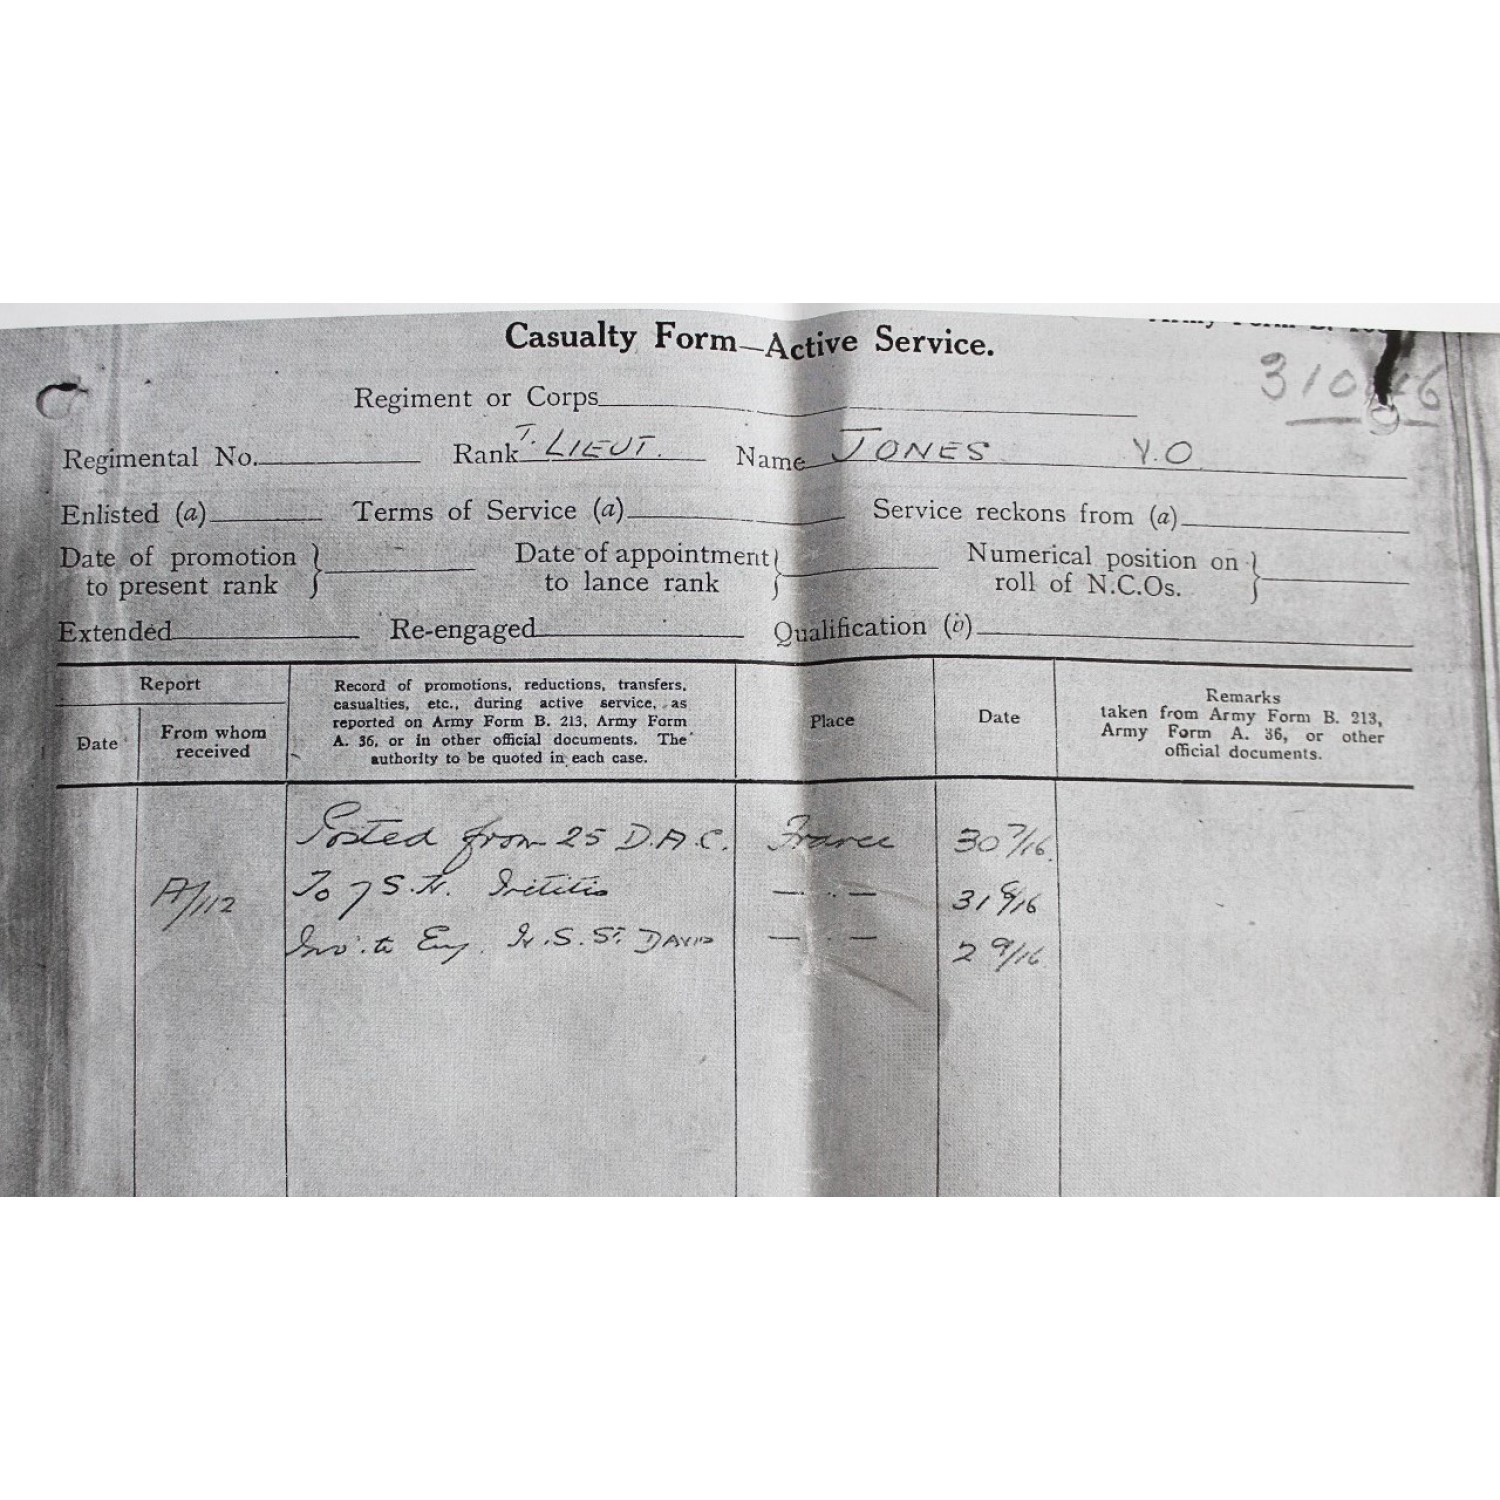 Casualty Form—Active Service.
Regiment or Corps
Regimental No. Rank T. LIEUT. Name JONES Y.O.
Enlisted (a) Terms of Service (a) Service reckons from (a)
Date of promotion to present rank } Date of appointment to lance rank } Numerical position on roll of N.C.Os. }
Extended Re-engaged Qualification (b)
Report
Date
From whom received
Record of promotions, reductions, transfers,
casualties, etc., during active service, as
reported on Army Form B. 213, Army Form
A. 36, or in other official documents. The
authority to be quoted in each case.
Place
Date
Remarks
taken from Army Form B. 213,
Army Form A. 36, or other
official documents.
Posted from 25 D.A.C. France 30 7/16.
A/112 To 7 S. H. — . — 31 8/16
Inv. to Eng. H.S. ST. DAVID — . — 2 9/16